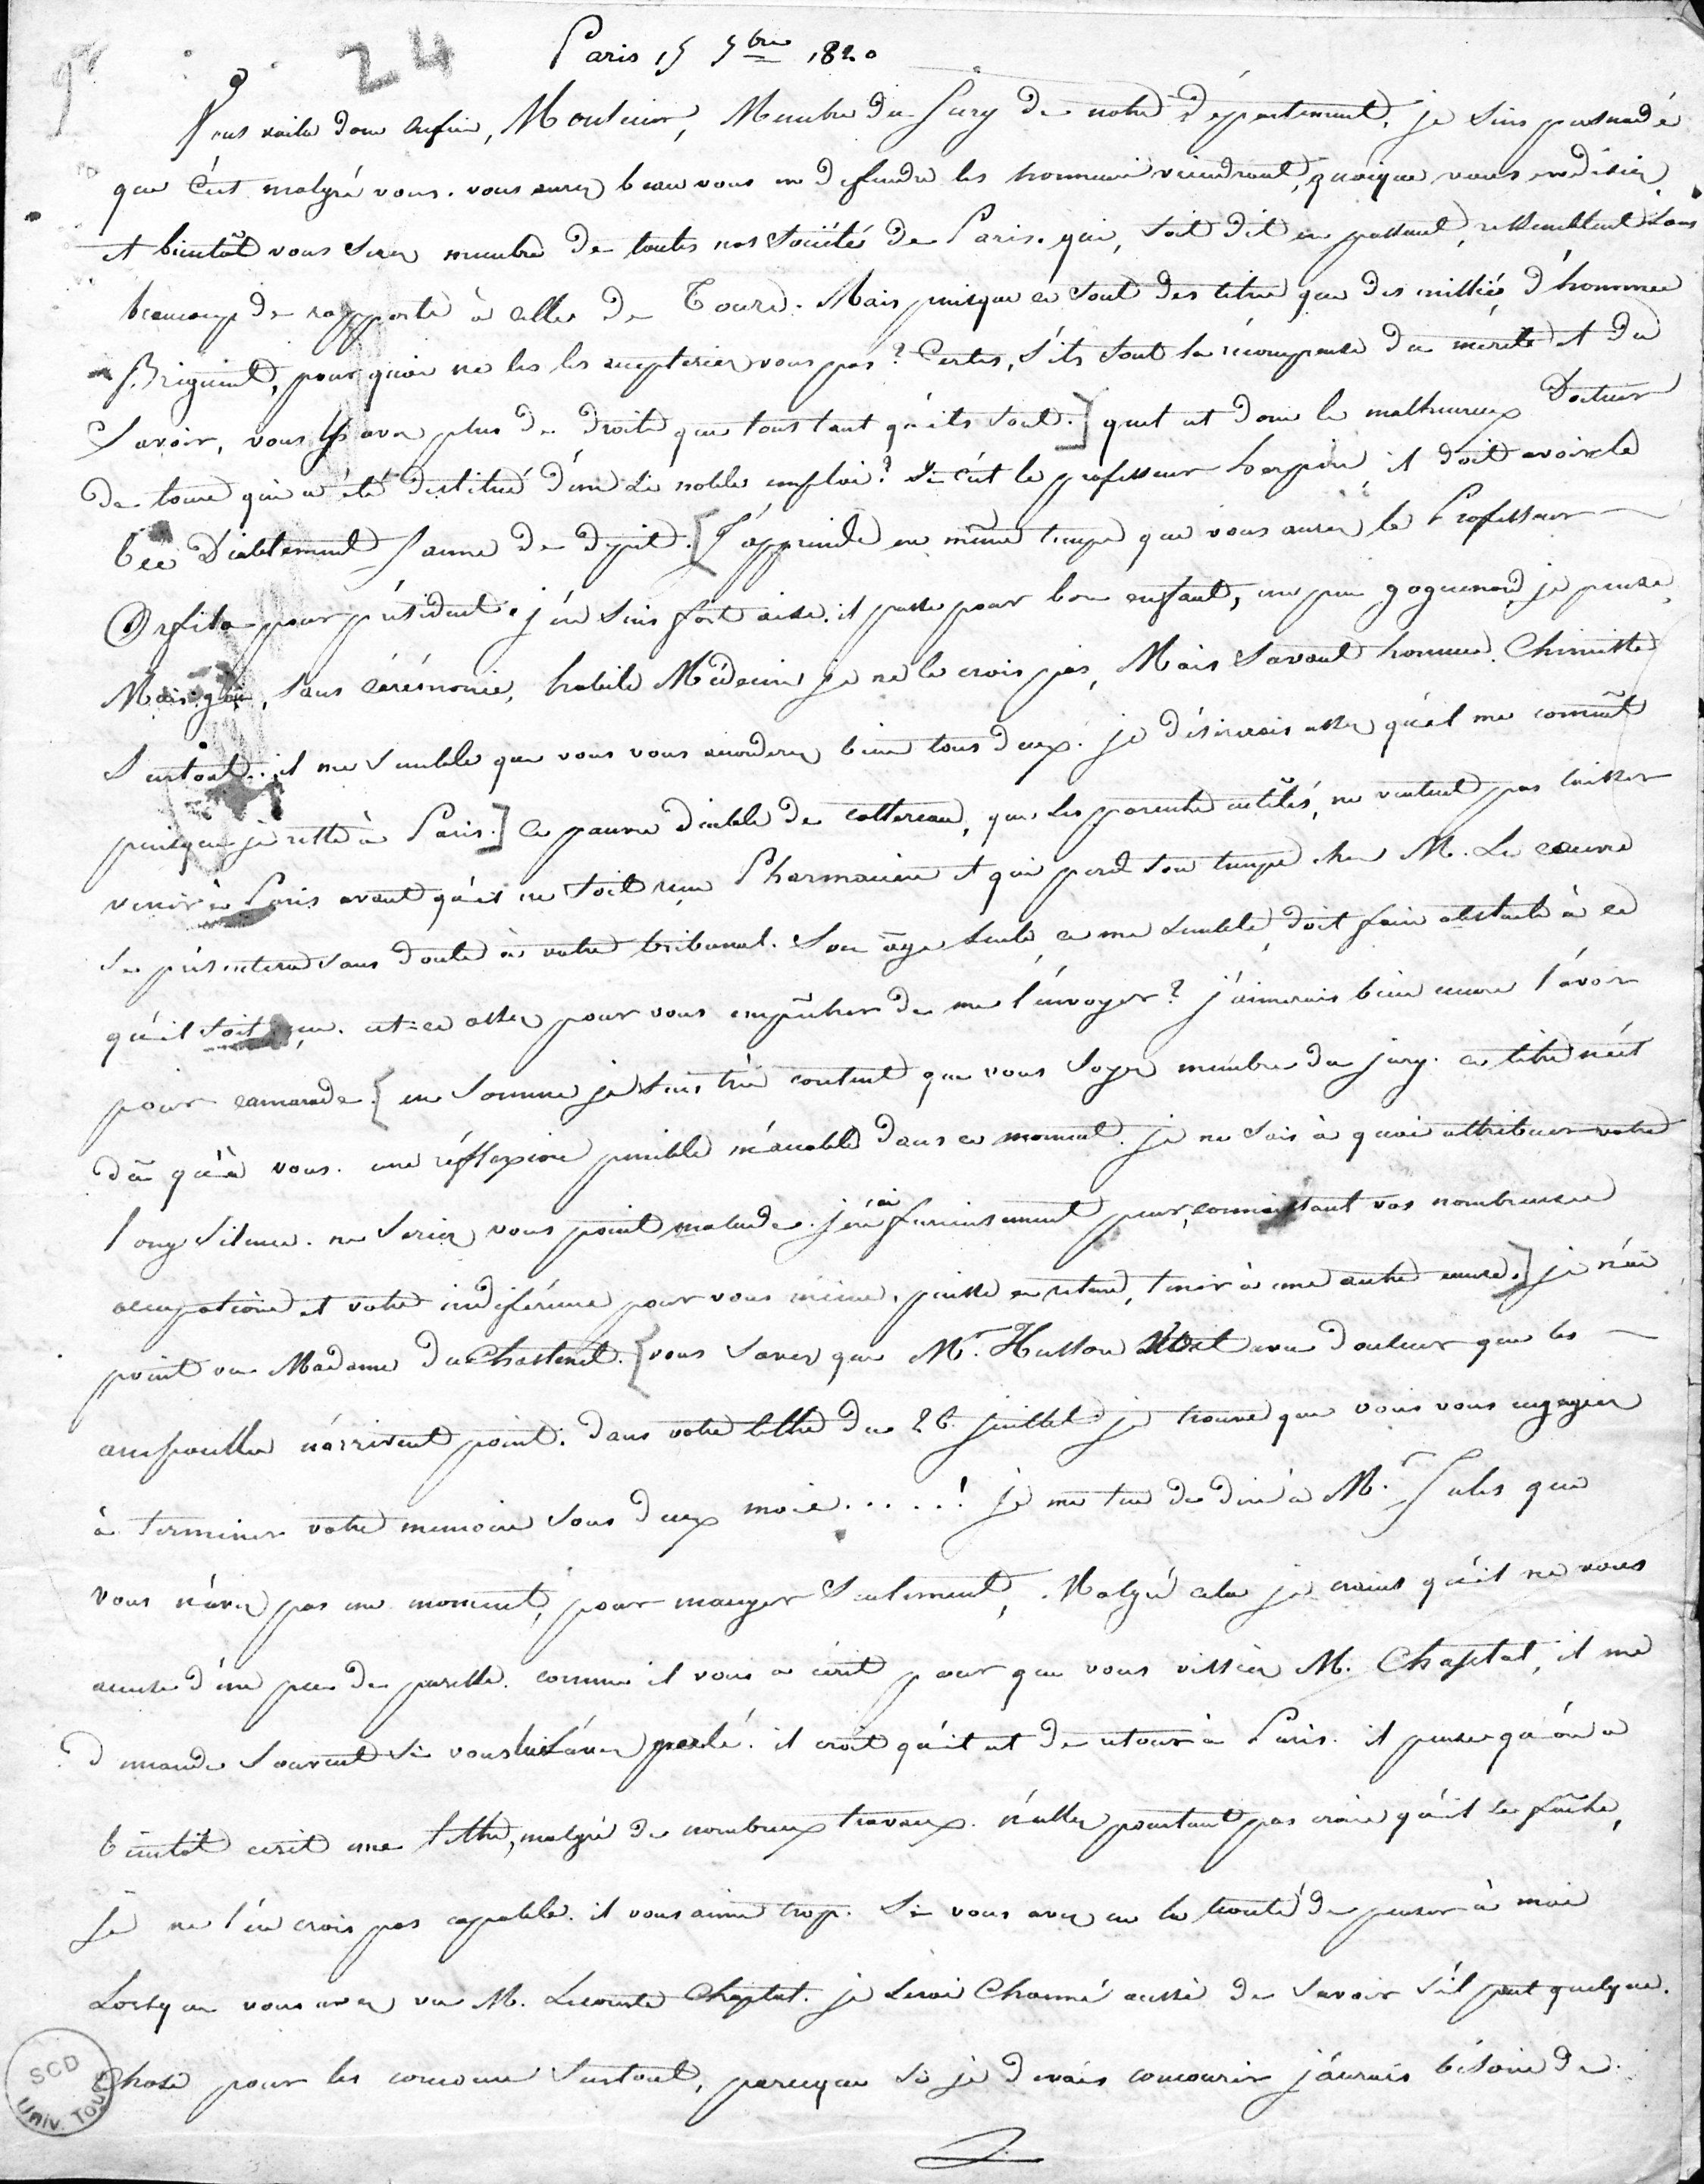 24
Paris 15 7bre 1820
Vous voila donc enfin, Monsieur, Membre du Jury de notre département. je suis persuadé
que c'est malgré vous. vous aurez beau vous en defendre les honneurs viendront, quoique vous en disiez.
et bientôt vous serez membre de toutes nos sociétés de Paris. qui, soit dit en passant, ressemblent sous
beaucoup de rapports à celles de Tours. Mais puisque ce sont des titres que des milliers d'hommes
Briguent, pourquoi ne les accepteriez vous pas? Certes, s'ils sont la récompense du mérite et du
Savoir, vous y avez plus de droits que tous tant qu'ils sont.] quel est donc le malheureux Docteur
de tours qui a été destitué d'un si noble emploi? Si c'est le professeur herpin, il doit avoir le
bec Diablement Jaune de dépit. [J'apprends en même temps que vous aurez le Professeur
Orfila pour président. j'en suis fort aise. il passe pour bon enfant, un peu goguenard, je pense,
Mais gai, sans cérémonie, habile Médecin je ne le crois pas, Mais savant homme. Chimiste
surtout. il me semble que vous vous accorderez bien tous deux. je désirerais assez qu'il me connut
puisque je reste à Paris.] Ce pauvre diable de cottereau, que les parents entêtés, ne veulent pas laisser
venir à Paris avant qu'il ne soit reçu Pharmacien et qui perd son temps chez M. Le
se présentera sans doute à votre tribunal. Son âge seul, ce me semble, doit faire obstacle à ce
qu'il soit reçu. est-ce assez pour vous empêcher de me l'envoyer? j'aimerais bien encore l'avoir
pour camarade. [en somme je suis très content que vous soyez membre du jury. ce titre n'est
dû qu'à vous. une réflexion pénible m'accable dans ce moment. je ne sais à quoi attribuer votre
long silence. ne seriez vous point malade. j'en ai furieusement peur, connaissant vos nombreuses
occupations et votre indiférence pour vous même. puisse ce retard, tenir à une autre cause.] je n'ai
point vu Madame du Chastenet. [vous savez que Mr. Husson voit avec douleur que les
ampoulles n'arrivent point. Dans votre lettre du 26 juillet je trouve que vous vous engagiez
à terminer votre memoire sous deux mois.....! je me tue de dire à Mr. Jules que
vous n'avez pas un moment, pour manger seulement, . Malgré cela je crains qu'il ne vous
accuse d'un peu de paresse. comme il vous a écrit pour que vous vissiez M. Chaptal, il me
demande souvent si vous lui avez parlé. il croit qu'il est de retour à Paris. il pense qu'on a
bientôt écrit une lettre, malgré de nombreux travaux. n'allez pourtant pas croire qu'il se fâche,
Je ne l'en crois pas capable. il vous aime trop. Si vous avez eu la bonté de penser à moi
Lorsque vous avez vu M. Lecomte Chaptal. je serai Charmé aussi de savoir s'il peut quelque
Chose pour les concours surtout, parceque si je devais concourir j'aurais besoin de
SCD
Univ. Tours